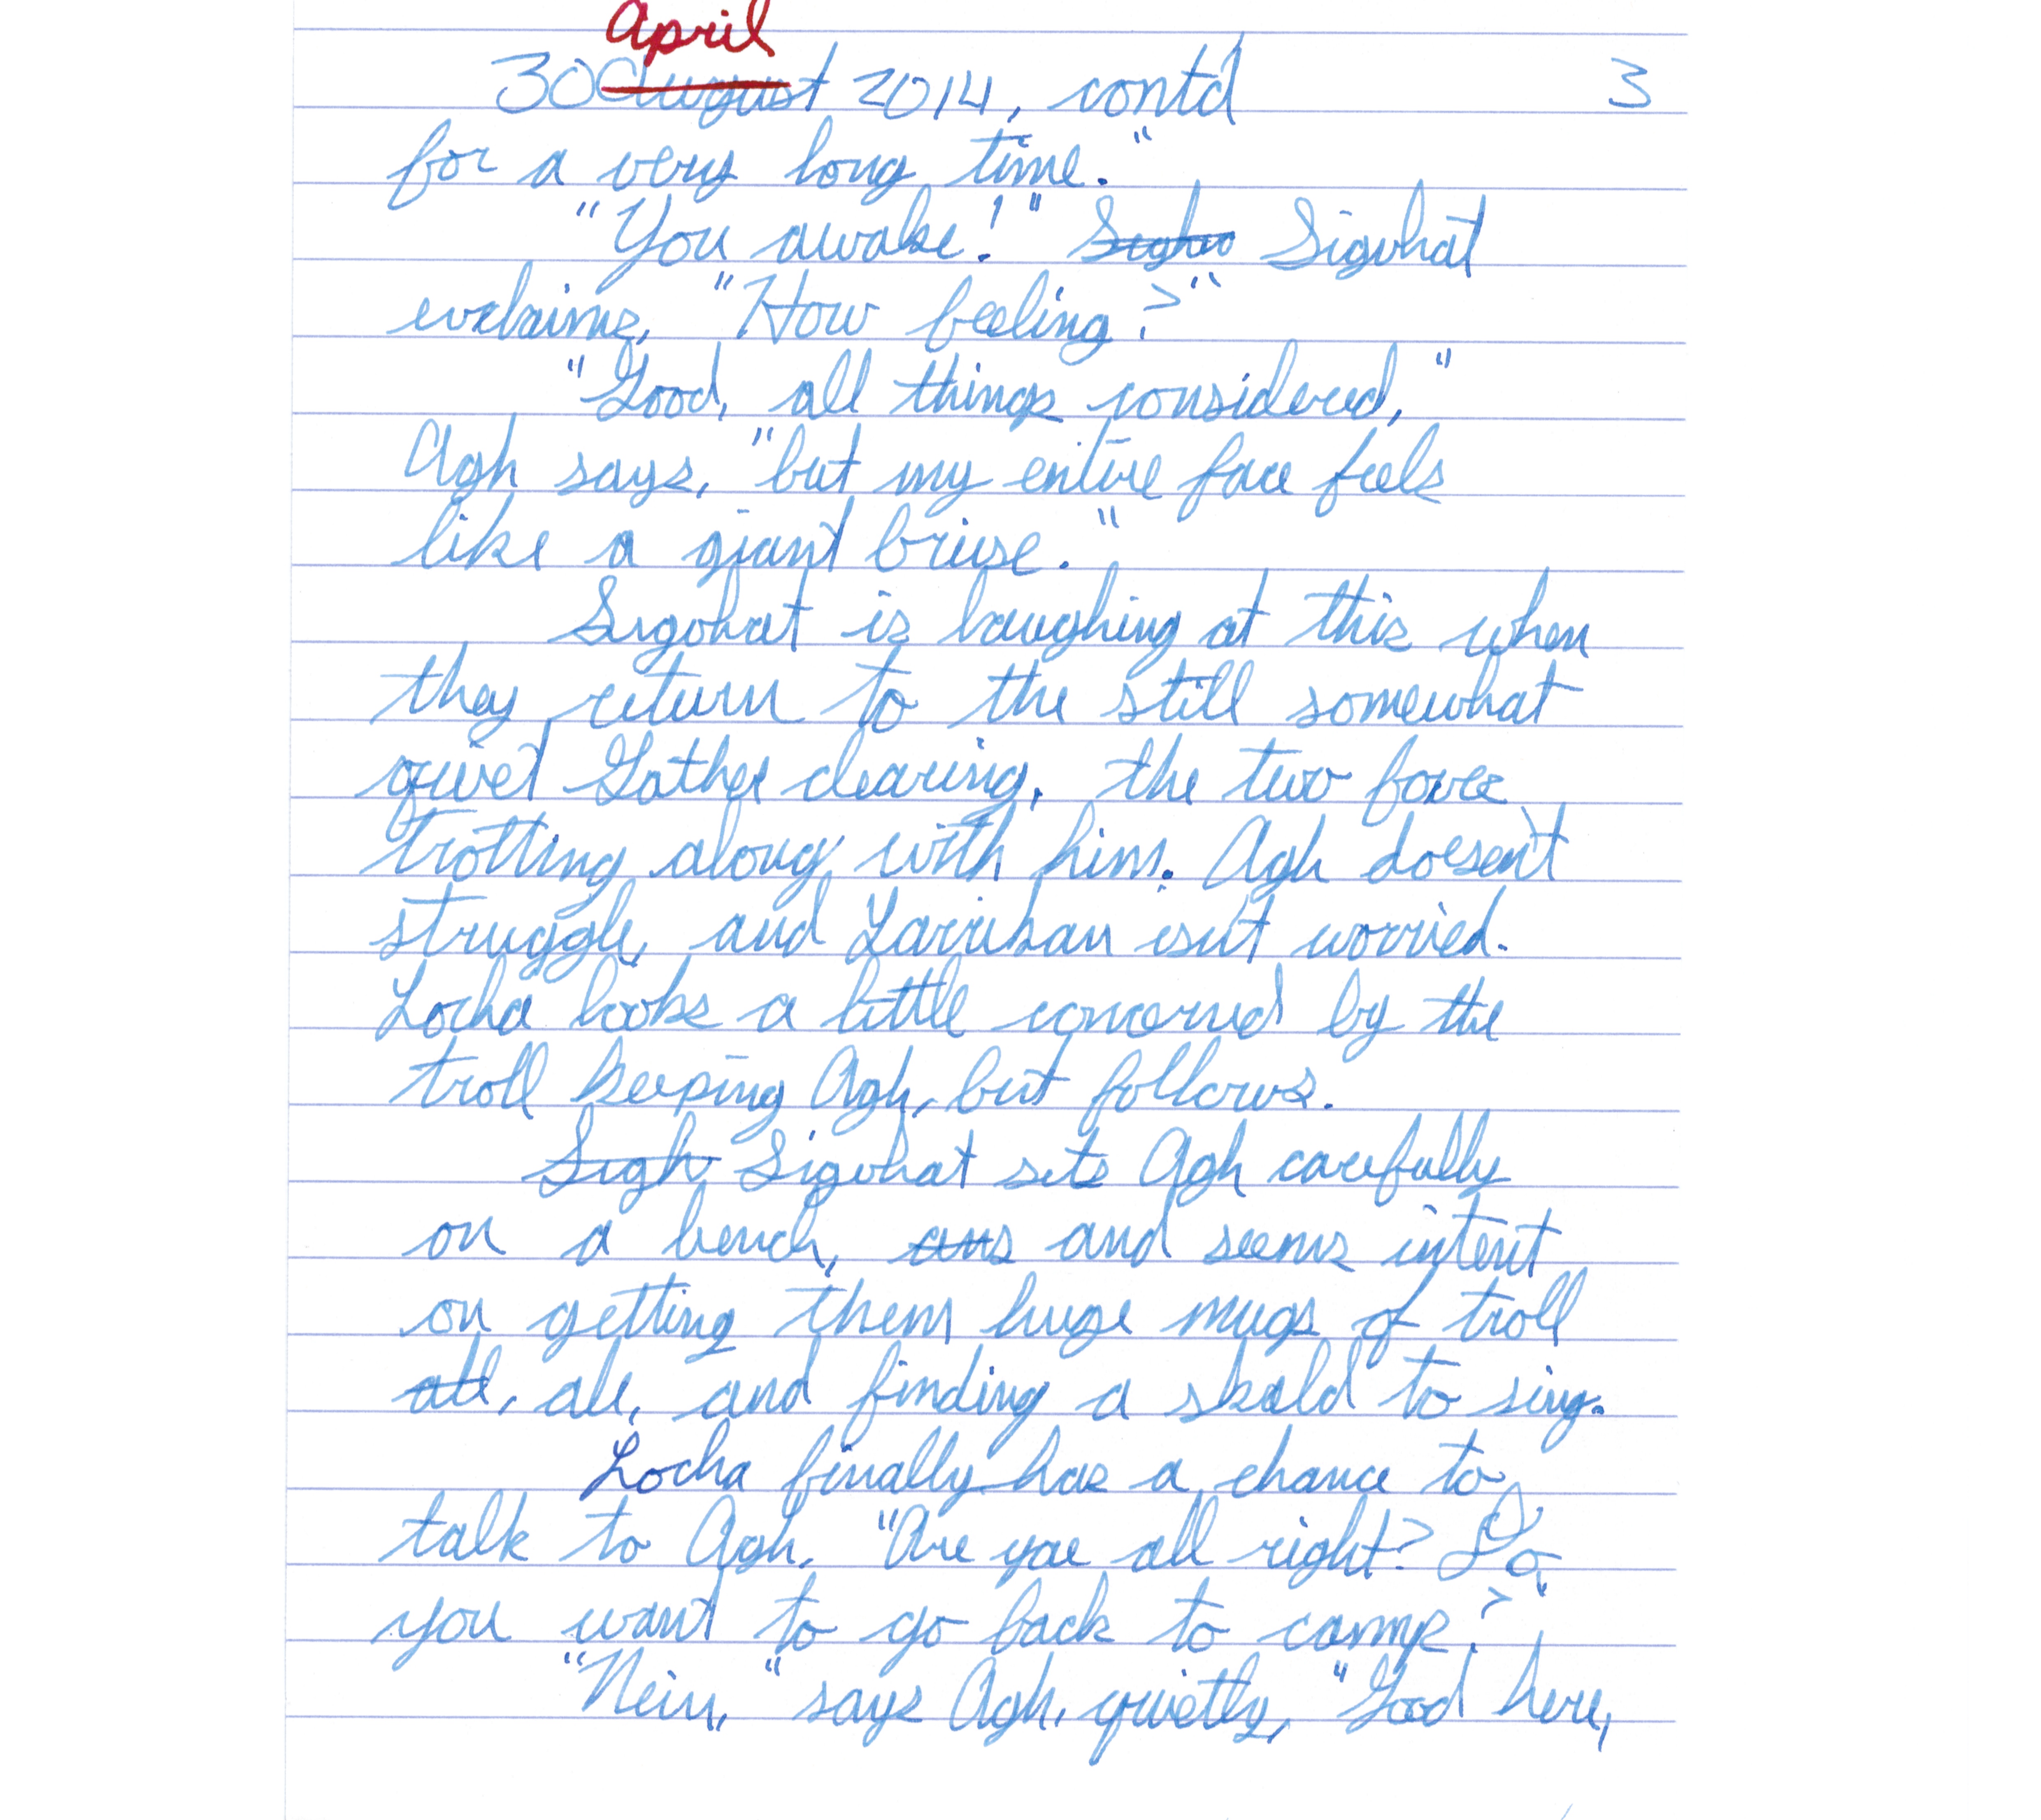 April
30 ~~August~~ 2014, contd 3
for a very long time."
"You awake!" ~~Sighv~~ Sigvhat
exclaims, "How feeling?"
"Good, all things considered,"
Agh says, "but my entire face feels
like a giant bruise."
Sigvhat is laughing at this when
they return to the still somewhat
quiet Gather clearing, the two
trotting along with him. Agh doesn't
struggle, and Larrihan isn't worried.
Locha looks a little concerned by the
troll keeping Agh, but follows.
~~Sigh~~ Sigvhat sets Agh carefully
on a bench, ~~ans~~ and seems intent
on getting them huge mugs of troll
~~ale,~~ ale, and finding a skald to sing.
Locha finally has a chance to
talk to Agh. "Are you all right? Do
you want to go back to camp?"
"Nein," says Agh, quietly, "Good here,